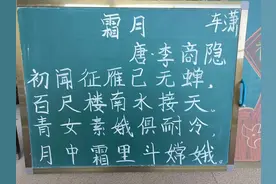 霜月
车潇
唐·李商隐
初闻征雁已无蝉。
百尺楼南水接天。
青女素娥俱耐冷，
月中霜里斗婵娥。